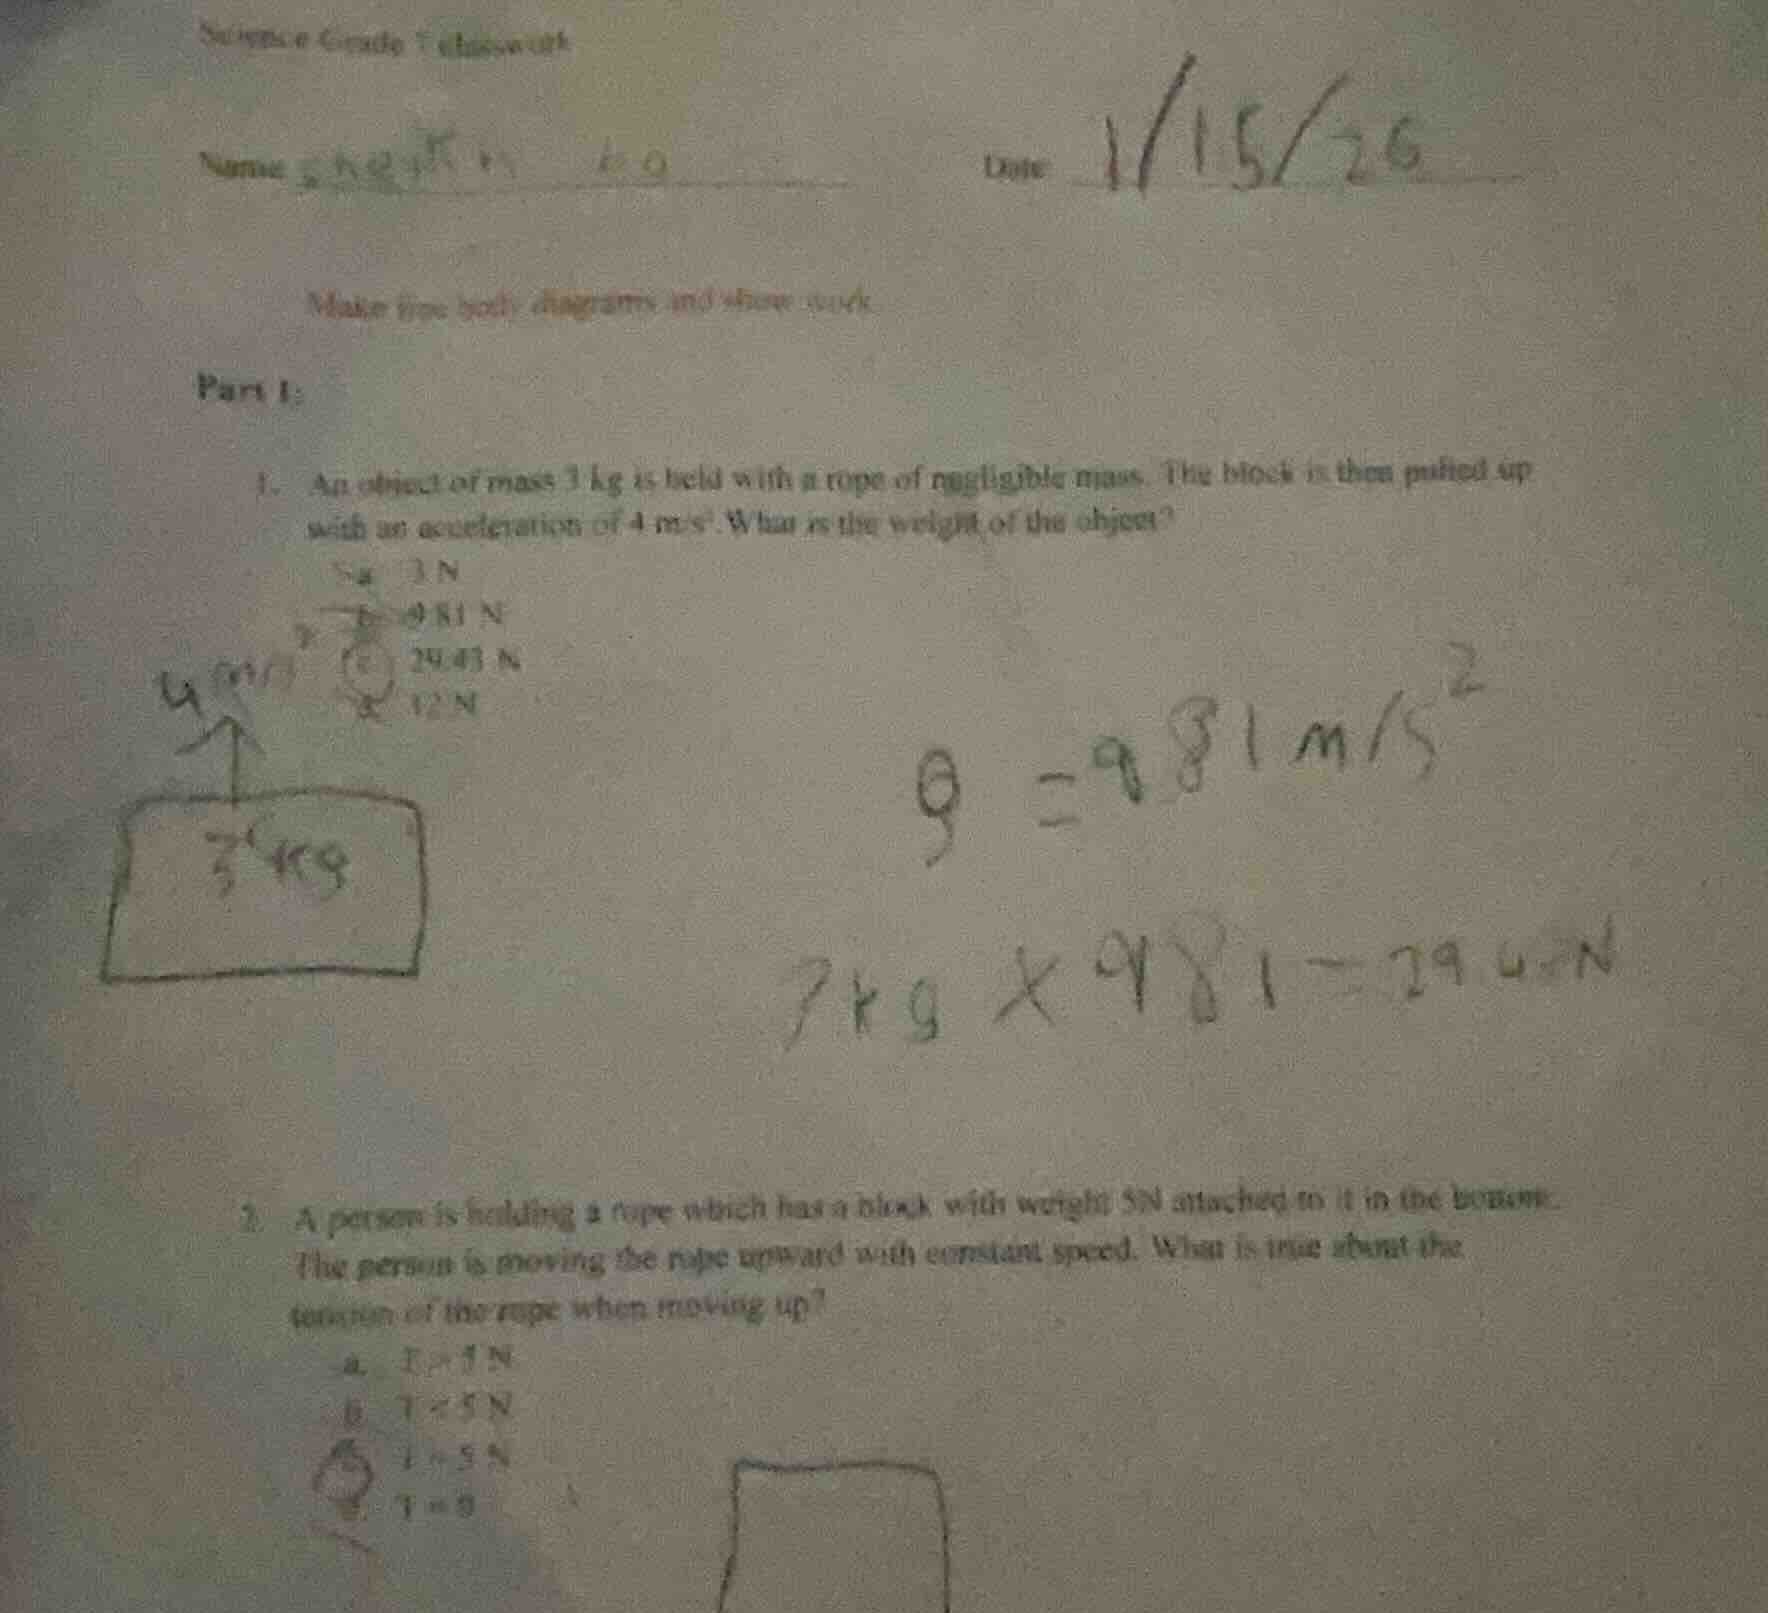 Science Grade 7 classwork
Name
Date 1/15/26
Make free body diagrams and show work
Part 1:
1. An object of mass 3 kg is held with a rope of negligible mass. The block is then pulled up
with an acceleration of 4 m/s². What is the weight of the object?
a. 3 N
b. 9.81 N
c. 29.43 N
d. 12 N
4
3 kg
g = 9.81 m/s²
kg × 9.81 = 29.4 N
2. A person is holding a rope which has a block with weight 5N attached to it in the bottom.
The person is moving the rope upward with constant speed. What is true about the
tension of the rope when moving up?
a. T > 5 N
b. T < 5 N
T = 5 N
T = 0